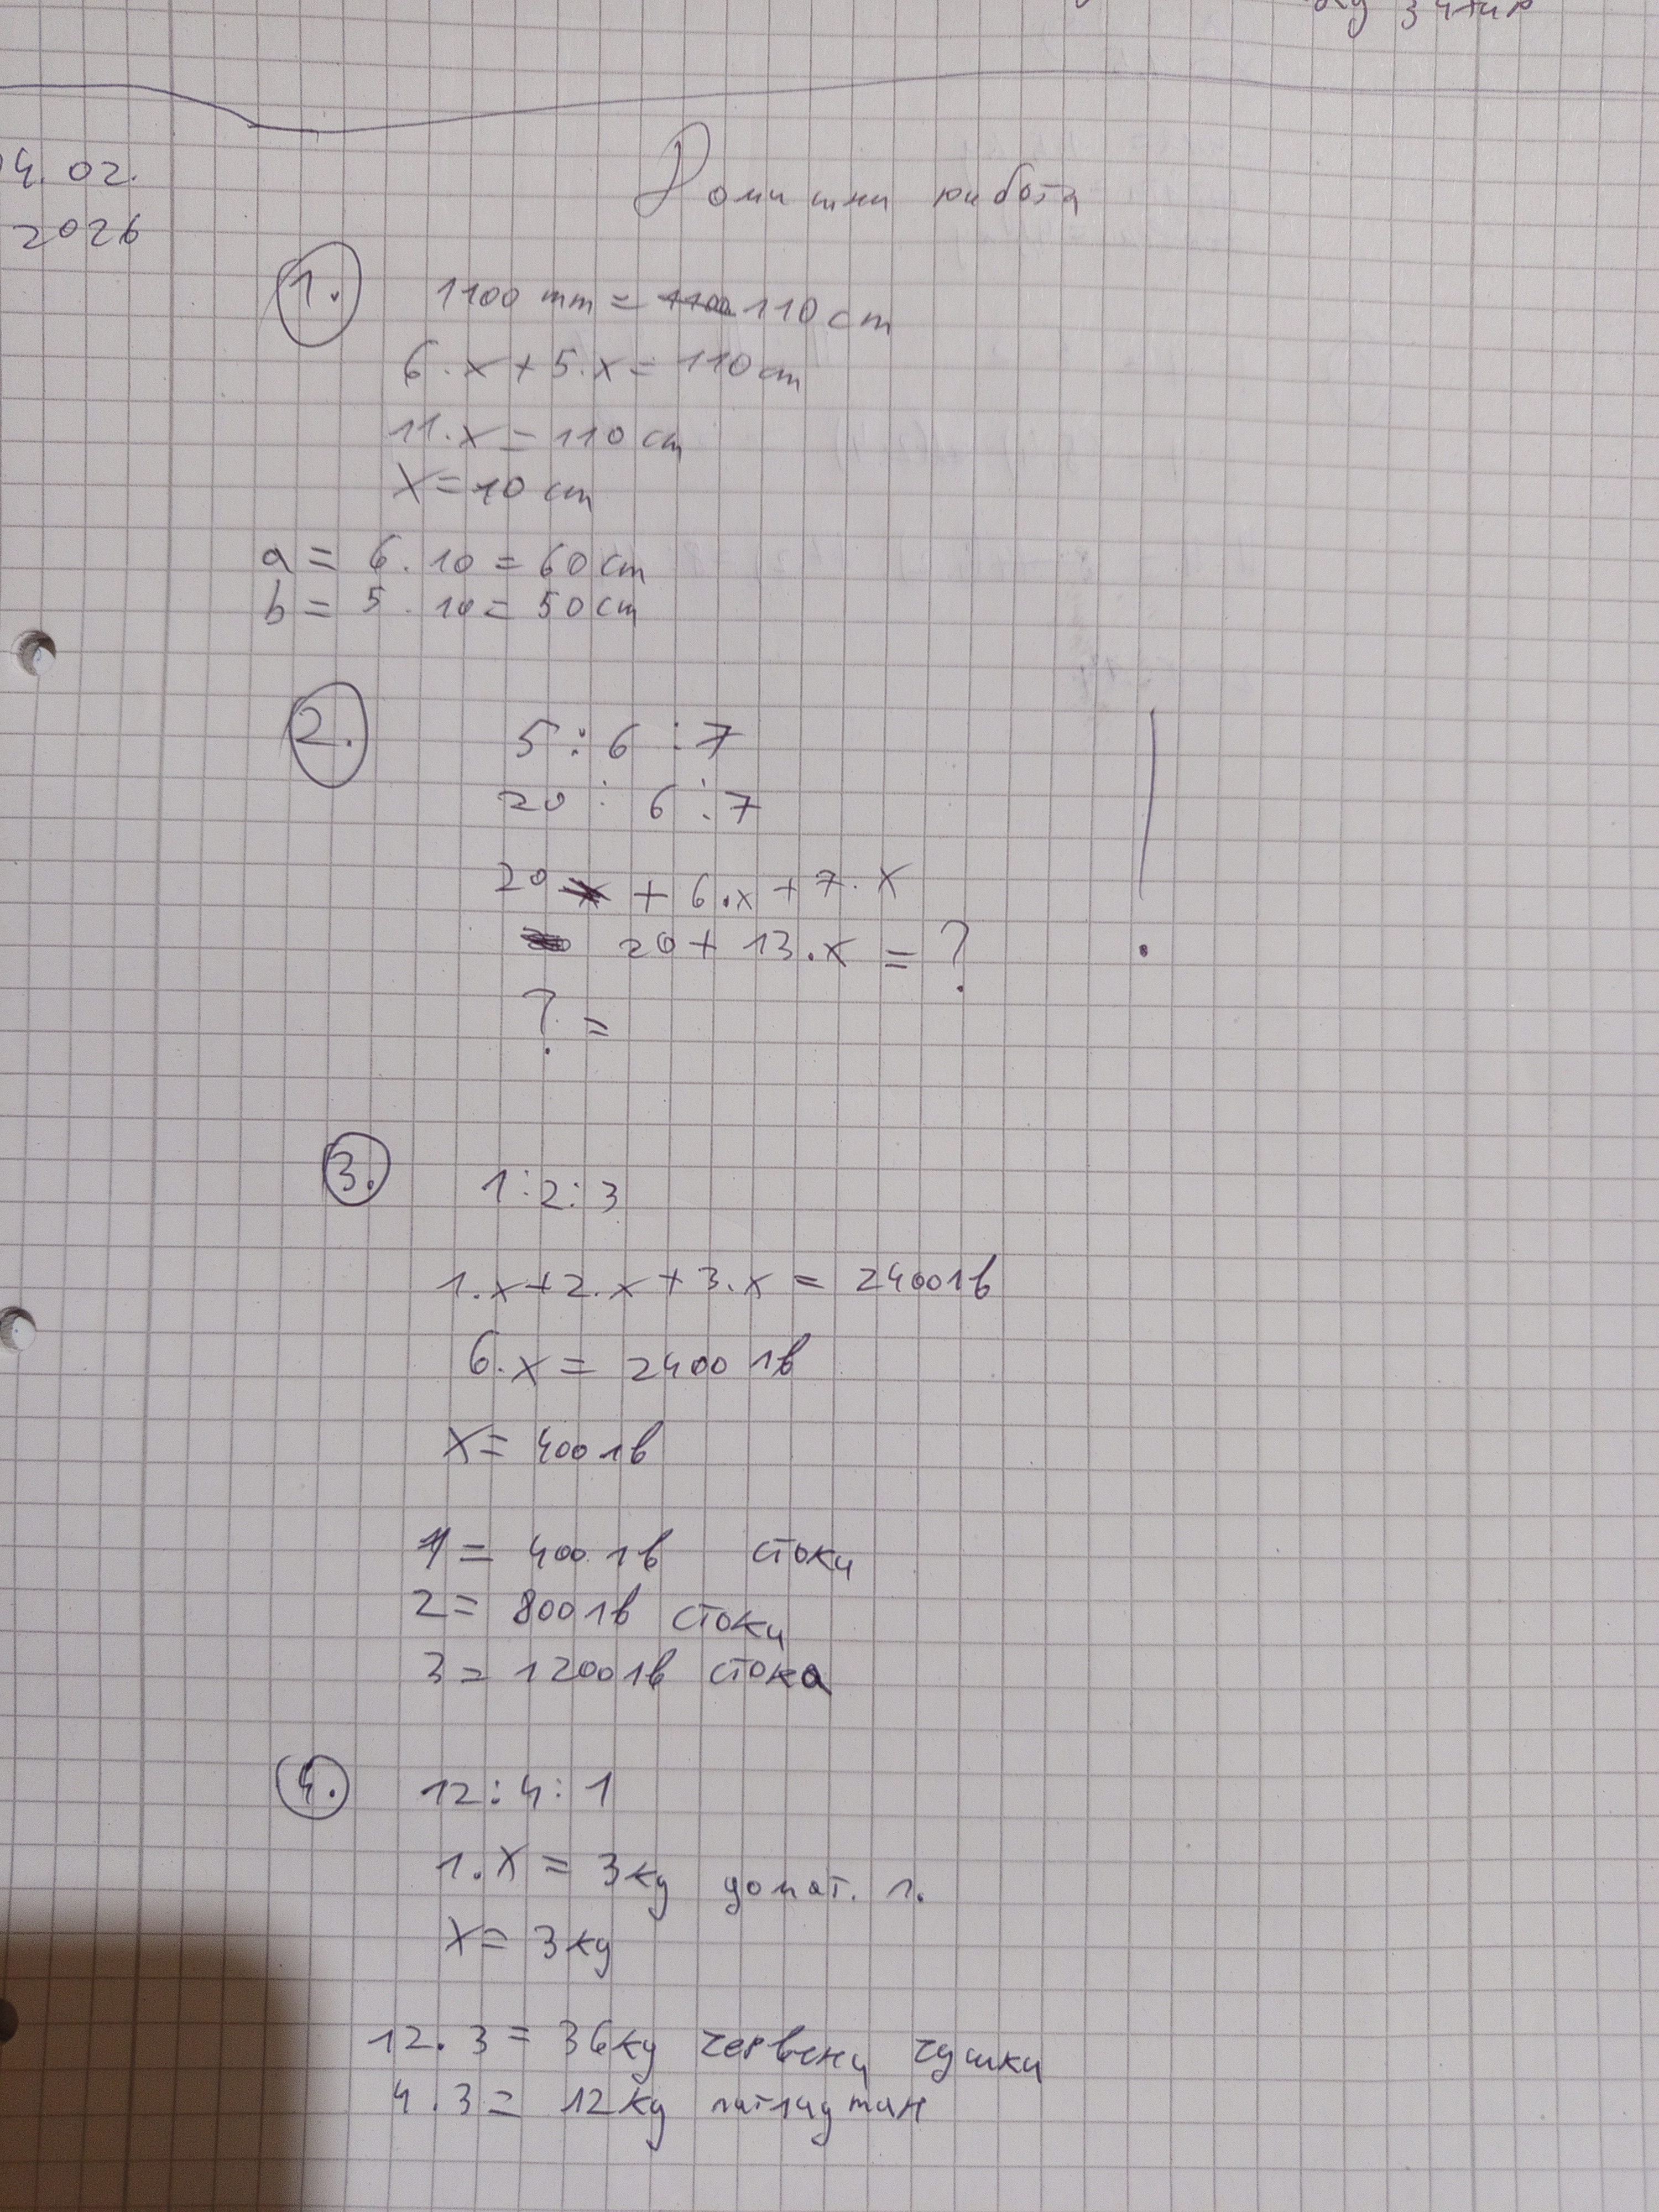 04. 02.
2026
Домашна работа
1. 1100 mm = 1100 110 cm
6.x + 5.x = 110 cm
11.x = 110 cm
x = 10 cm
a = 6. 10 = 60 cm
b = 5 . 10 = 50 cm
2. 5 : 6 : 7
20 : 6 : 7
20 x + 6.x + 7. x
20 + 13.x = ?
? =
!
3. 1 : 2 : 3
1.x + 2.x + 3.x = 2400 лв
6.x = 2400 лв
x = 400 лв
1 = 400 лв стоки
2 = 800 лв стоки
3 = 1200 лв стока
4. 12 : 4 : 1
1.x = 3 кg домат. 1.
x = 3 кg
12. 3 = 36 кg червени чушки
4 . 3 = 12 кg патладжан